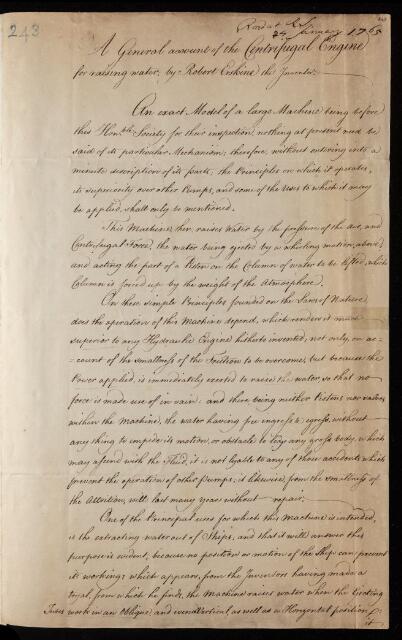 243
Read at R.S.
24 January 1765
A General account of the Centrifugal Engine
for raising water, by Robert Erskine the Inventor.
An exact Model of a large Machine being before
this Hon.ble Society for their inspection, nothing at present need be
said of its particular Mechanism; therefore, without entering into a
minute description of its parts, the Principles on which it operates,
its superiority over other Pumps, and some of the Uses to which it may
be applied, shall only be mentioned.
This Machine then raises Water by the pressure of the Air, and
Centrifugal Force, the water being ejected by a whirling motion,
and acting the part of a Piston on the Column of water to be lifted, which
Column is forced up by the weight of the Atmosphere.
On these simple Principles founded on the Laws of Nature
does the operation of this Machine depend, which render it much
superior to any Hydraulic Engine hitherto invented, not only on ac=
=count of the smallness of the Friction to be overcome, but because the
Power applied, is immediately exerted to raise the water, so that no
force is made use of in vain: and there being neither Pistons nor valves
within the Machine, the water having free ingress & egress, without
any thing to impede its motion, or obstacle to any gross body, which
may ascend with the Fluid, it is not lyable to any of those accidents which
prevent the operation of other Pumps; & likewise, from the smallness of
the Attrition, will last many years without repair.
One of the Principal uses for which this Machine is intended,
is the extracting water out of Ships, and that it will answer this
purpose is evident, because no position or motion of the Ship can prevent
its working; which appears, from the Inventors having made a
tryal, from which he finds, the Machine raises water when the Ejecting
Tubes work in an Oblique, and even Vertical, as well as a Horizontal position;
it